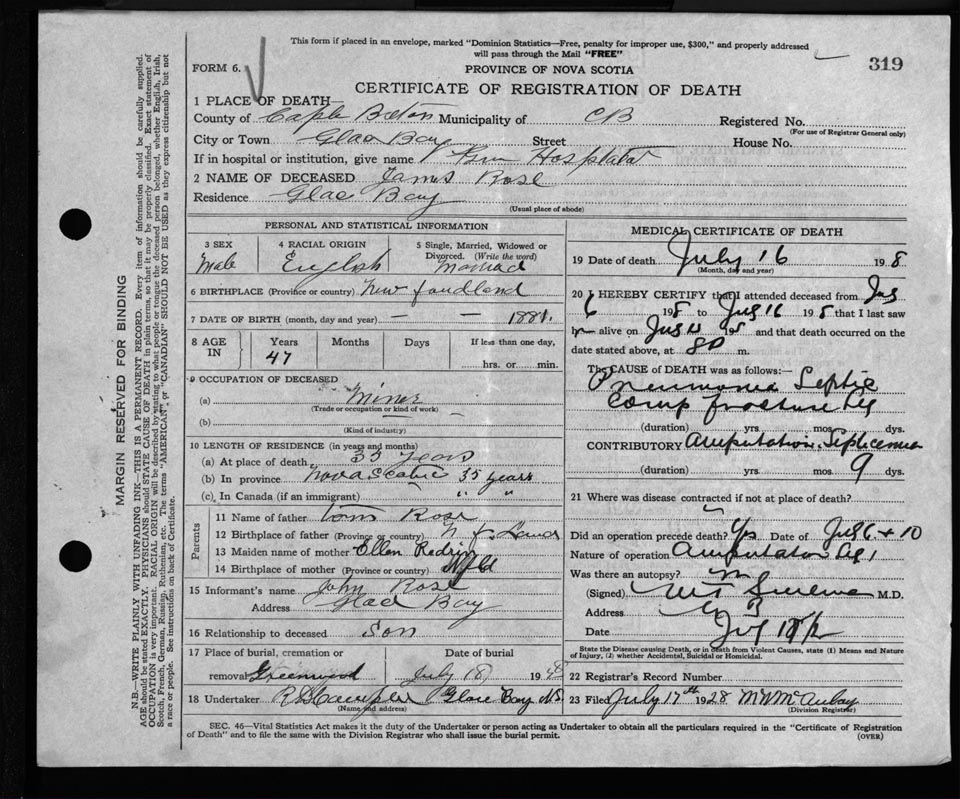 This form if placed in an envelope, marked "Dominion Statistics—Free, penalty for improper use, $300," and properly addressed
will pass through the Mail "FREE"
319
FORM 6.
PROVINCE OF NOVA SCOTIA
CERTIFICATE OF REGISTRATION OF DEATH
1 PLACE OF DEATH—
County of Cape Breton Municipality of CB Registered No.
(For use of Registrar General only)
City or Town Glace Bay Street House No.
If in hospital or institution, give name Gen Hospital
2 NAME OF DECEASED James Rose
Residence Glace Bay
(Usual place of abode)
PERSONAL AND STATISTICAL INFORMATION
3 SEX 4 RACIAL ORIGIN 5 Single, Married, Widowed or
Divorced. (Write the word)
Male English Married
6 BIRTHPLACE (Province or country) New foundland
7 DATE OF BIRTH (month, day and year) — — 1881.
8 AGE IN Years Months Days If less than one day,
47 hrs. or min.
9 OCCUPATION OF DECEASED
(a) Miner
(Trade or occupation or kind of work)
(b) —
(Kind of industry)
10 LENGTH OF RESIDENCE (in years and months)
(a) At place of death 35 years
(b) In province Nova Scotia 35 years
(c) In Canada (if an immigrant) " "
Parents
11 Name of father Tom Rose
12 Birthplace of father (Province or country)
13 Maiden name of mother Ellen
14 Birthplace of mother (Province or country) Nfld
15 Informant's name John Rose
Address Glace Bay
16 Relationship to deceased Son
17 Place of burial, cremation or Date of burial
removal Greenwood July 18 19
18 Undertaker Glace Bay N.S.
(Name and address)
MEDICAL CERTIFICATE OF DEATH
19 Date of death July 16 19 8
(Month, day and year)
20 I HEREBY CERTIFY that I attended deceased from July
6 19 8 to July 16 19 8 that I last saw
h alive on July 19 and that death occurred on
date stated above, at m.
The CAUSE OF DEATH was as follows:—
Pneumonia Septic
Comp fracture leg
(duration) yrs. mos. dys.
CONTRIBUTORY Amputation. Septicemia
(duration) yrs. mos. 9 dys.
21 Where was disease contracted if not at place of death?
Did an operation precede death? Yes Date of July 6 + 10
Nature of operation Amputation leg
Was there an autopsy? no
(Signed) M.D.
Address
Date July
State the Disease causing Death, or in death from Violent Causes, state (1) Means and Nature
of Injury, (2) whether Accidental, Suicidal or Homicidal.
22 Registrar's Record Number
23 Filed July 17th 1928
(Division Registrar)
SEC. 46—Vital Statistics Act makes it the duty of the Undertaker or person acting as Undertaker to obtain all the particulars required in the "Certificate of Registration
of Death" and to file the same with the Division Registrar who shall issue the burial permit.
(OVER)
MARGIN RESERVED FOR BINDING
N.B.—WRITE PLAINLY WITH UNFADING INK—THIS IS A PERMANENT RECORD. Every item of information should be carefully supplied.
AGE should be stated EXACTLY. PHYSICIANS should STATE CAUSE OF DEATH in plain terms, so that it may be properly classified. Exact statement of
OCCUPATION is very important. RACIAL ORIGIN will be described by stating to what people or tongue the deceased person belonged, whether English, Irish,
Scotch, French, German, Russian, Ruthenian, etc. The terms "AMERICAN" or "CANADIAN" SHOULD NOT BE USED as they express citizenship but not
a race or people. See instructions on back of Certificate.